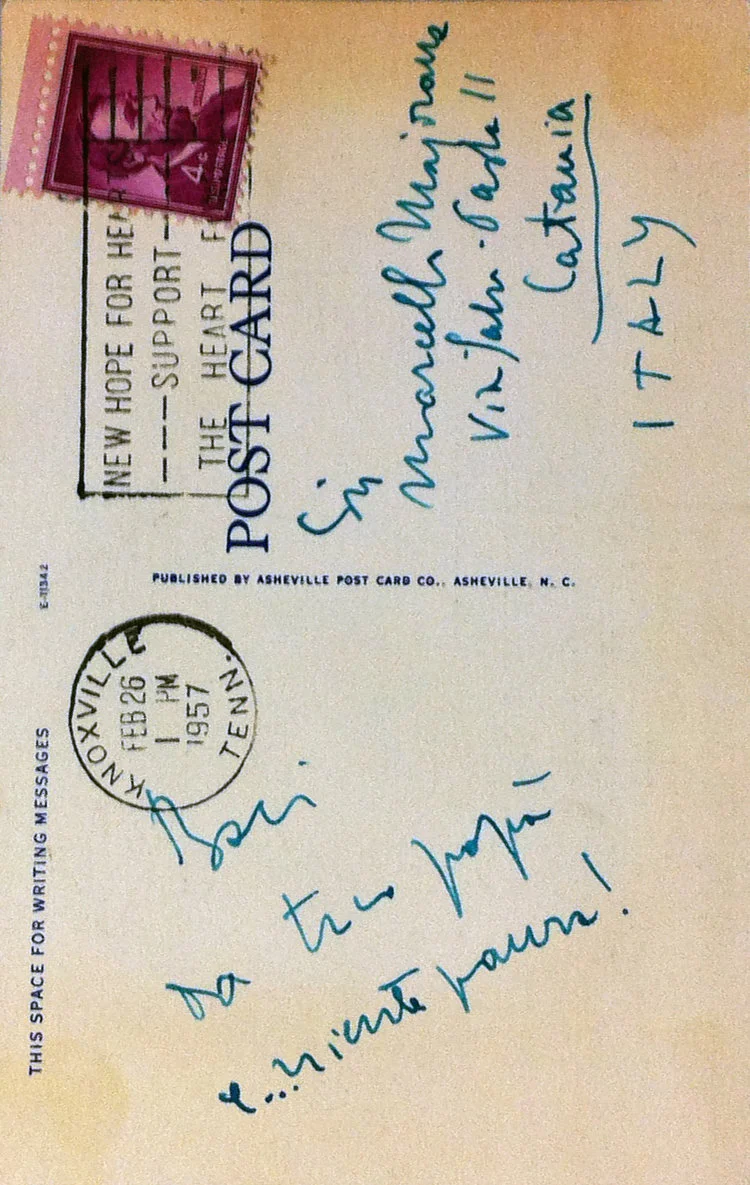 THIS SPACE FOR WRITING MESSAGES
E-11342
KNOXVILLE
FEB 26
1 PM
1957
TENN.
NEW HOPE FOR
---SUPPORT---
THE HEART
4¢
POST CARD
PUBLISHED BY ASHEVILLE POST CARD CO., ASHEVILLE, N. C.
Baci
da tuo papà
e...niente paura!
Sig
Marcello Majorana
Via Salv. Paola 11
Catania
ITALY